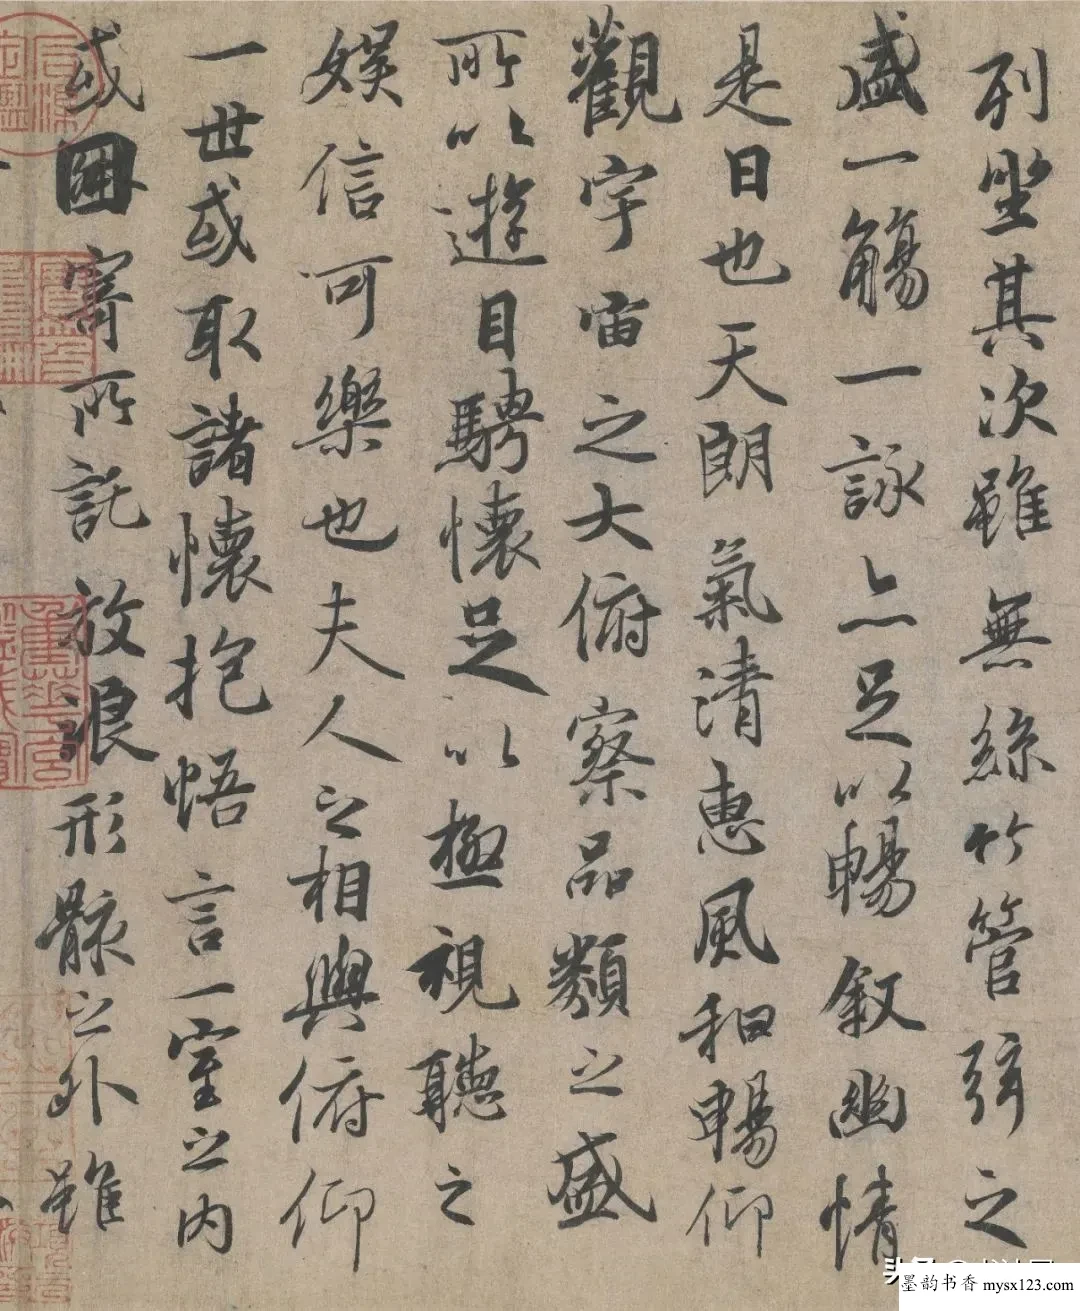 列坐其次雖無絲竹管弦之
盛一觴一詠亦足以暢敘幽情
是日也天朗氣清惠風和暢仰
觀宇宙之大俯察品類之盛
所以遊目騁懷足以極視聽之
娛信可樂也夫人之相與俯仰
一世或取諸懷抱悟言一室之內
或因寄所託放浪形骸之外雖
墨韵书香 mysx123.com